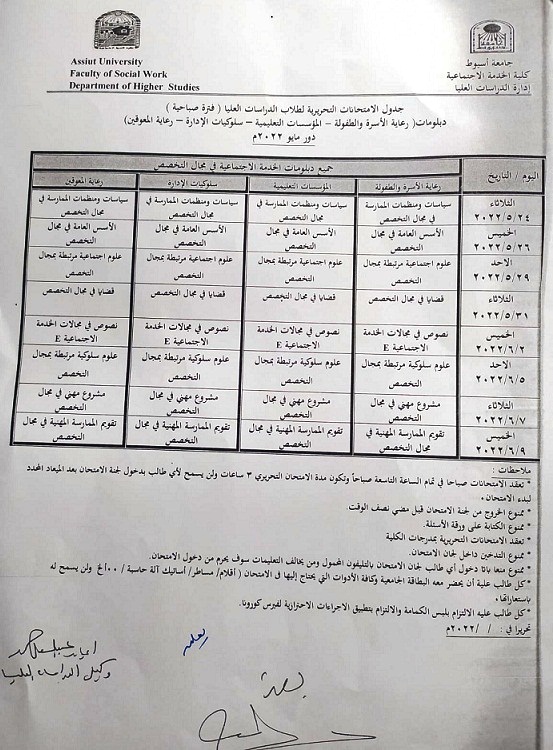 Assiut University
Faculty of Social Work
Department of Higher Studies
جامعة أسيوط
كلية الخدمة الاجتماعية
إدارة الدراسات العليا
جدول الامتحانات التحريرية لطلاب الدراسات العليا ( فترة صباحية )
دبلومات( رعاية الأسرة والطفولة – المؤسسات التعليمية – سلوكيات الإدارة – رعاية المعوقين)
دور مايو ٢٠٢٢م
اليوم / التاريخ
جميع دبلومات الخدمة الاجتماعية في مجال التخصص
رعاية الأسرة والطفولة
المؤسسات التعليمية
سلوكيات الإدارة
رعاية المعوقين
الثلاثاء
٢٠٢٢/٥/٢٤
سياسات ومنظمات الممارسة
في مجال التخصص
سياسات ومنظمات الممارسة في
مجال التخصص
سياسات ومنظمات الممارسة في
مجال التخصص
سياسات ومنظمات الممارسة في
مجال التخصص
الخميس
٢٠٢٢/٥/٢٦
الأسس العامة في مجال
التخصص
الأسس العامة في مجال
التخصص
الأسس العامة في مجال
التخصص
الأسس العامة في مجال
التخصص
الاحد
٢٠٢٢/٥/٢٩
علوم اجتماعية مرتبطة بمجال
التخصص
علوم اجتماعية مرتبطة بمجال
التخصص
علوم اجتماعية مرتبطة بمجال
التخصص
علوم اجتماعية مرتبطة بمجال
التخصص
الثلاثاء
٢٠٢٢/٥/٣١
قضايا في مجال التخصص
قضايا في مجال التخصص
قضايا في مجال التخصص
قضايا في مجال التخصص
الخميس
٢٠٢٢/٦/٢
نصوص في مجالات الخدمة
الاجتماعية E
نصوص في مجالات الخدمة
الاجتماعية E
نصوص في مجالات الخدمة
الاجتماعية E
نصوص في مجالات الخدمة
الاجتماعية E
الاحد
٢٠٢٢/٦/٥
علوم سلوكية مرتبطة بمجال
التخصص
علوم سلوكية مرتبطة بمجال
التخصص
علوم سلوكية مرتبطة بمجال
التخصص
علوم سلوكية مرتبطة بمجال
التخصص
الثلاثاء
٢٠٢٢/٦/٧
مشروع مهني في مجال
التخصص
مشروع مهني في مجال
التخصص
مشروع مهني في مجال
التخصص
مشروع مهني في مجال
التخصص
الخميس
٢٠٢٢/٦/٩
تقويم الممارسة المهنية في
مجال التخصص
تقويم الممارسة المهنية في مجال
التخصص
تقويم الممارسة المهنية في مجال
التخصص
تقويم الممارسة المهنية في مجال
التخصص
ملاحظات :
* تعقد الامتحانات صباحا في تمام الساعة التاسعة صباحاً وتكون مدة الامتحان التحريري ٣ ساعات ولن يسمح لأي طالب بدخول لجنة الامتحان بعد الميعاد المحدد
لبدء الامتحان.
* ممنوع الخروج من لجنة الامتحان قبل مضي نصف الوقت.
* ممنوع الكتابة على ورقة الأسئلة.
* تعقد الامتحانات التحريرية بمدرجات الكلية
* ممنوع التدخين داخل لجان الامتحان.
* ممنوع منعا باتا دخول أي طالب لجان الامتحان بالتليفون المحمول ومن يخالف التعليمات سوف يحرم من دخول الامتحان.
* كل طالب علية أن يحضر معه البطاقة الجامعية وكافة الأدوات التي يحتاج إليها في الامتحان ( أقلام/ مساطر/ أساتيك آلة حاسبة /٠٠الخ ولن يسمح له
باستعاراتها.
* كل طالب عليه الالتزام بلبس الكمامة والالتزام بتطبيق الاجراءات الاحترازية لفيرس كورونا.
تحريرا في : / /٢٠٢٢م
وكيل الدراسات العليا